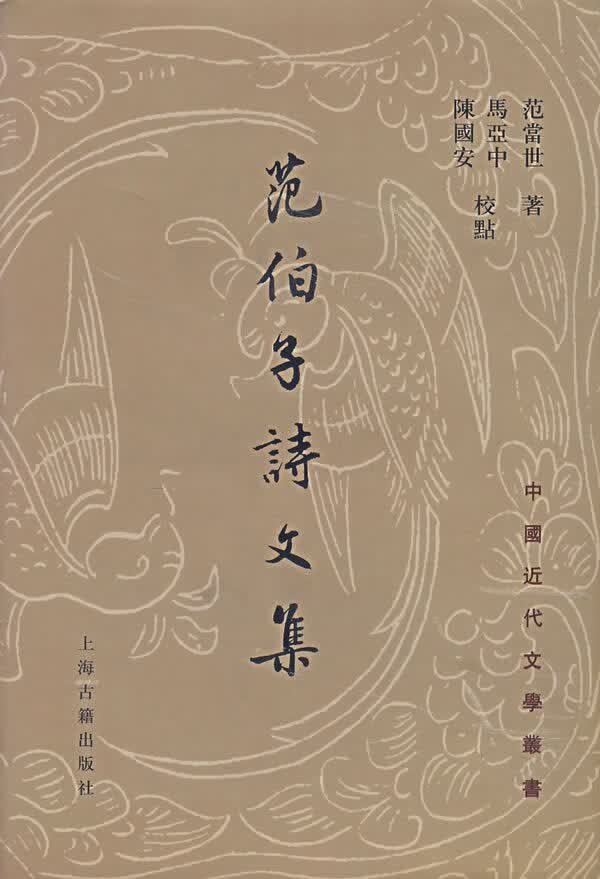 范當世 著
馬亞中
陳國安 校點
范伯子詩文集
中國近代文學叢書
上海古籍出版社